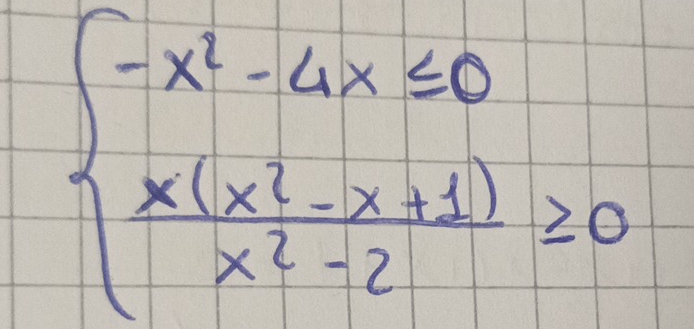 -x² - 4x ≤ 0
x(x² - x + 1)
x² - 2 ≥ 0